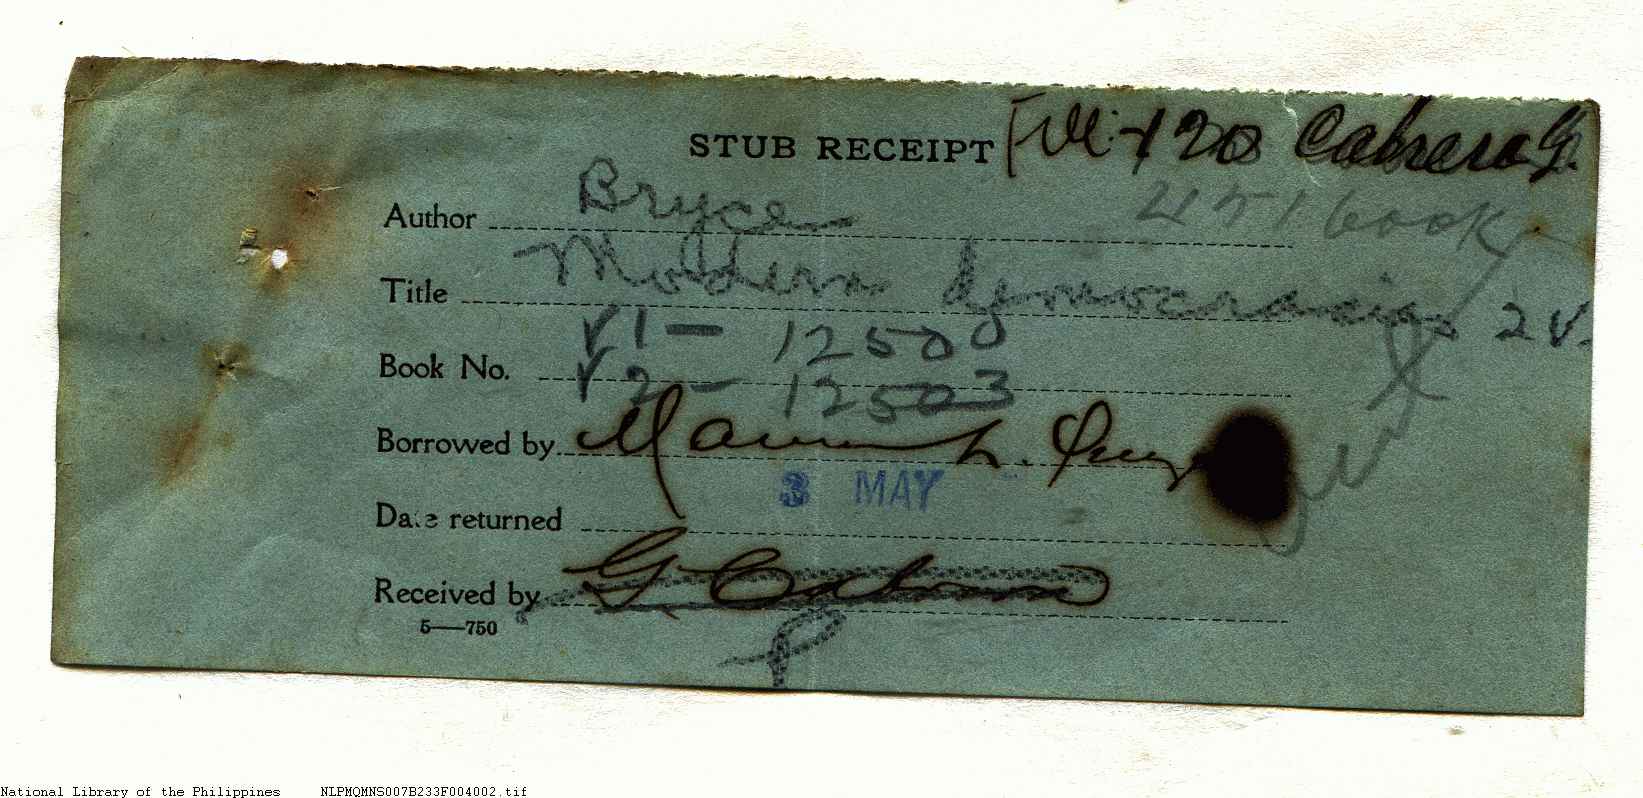 STUB RECEIPT
120 Cabrera G.
Author Bryce
book
Title Modern democracies 2 v.
v1 - 12500
Book No. v2 - 12503
Borrowed by
3 MAY
Date returned
Received by G. Cabrera
5—750
National Library of the Philippines NLPMQMNS007B233F004002.tif